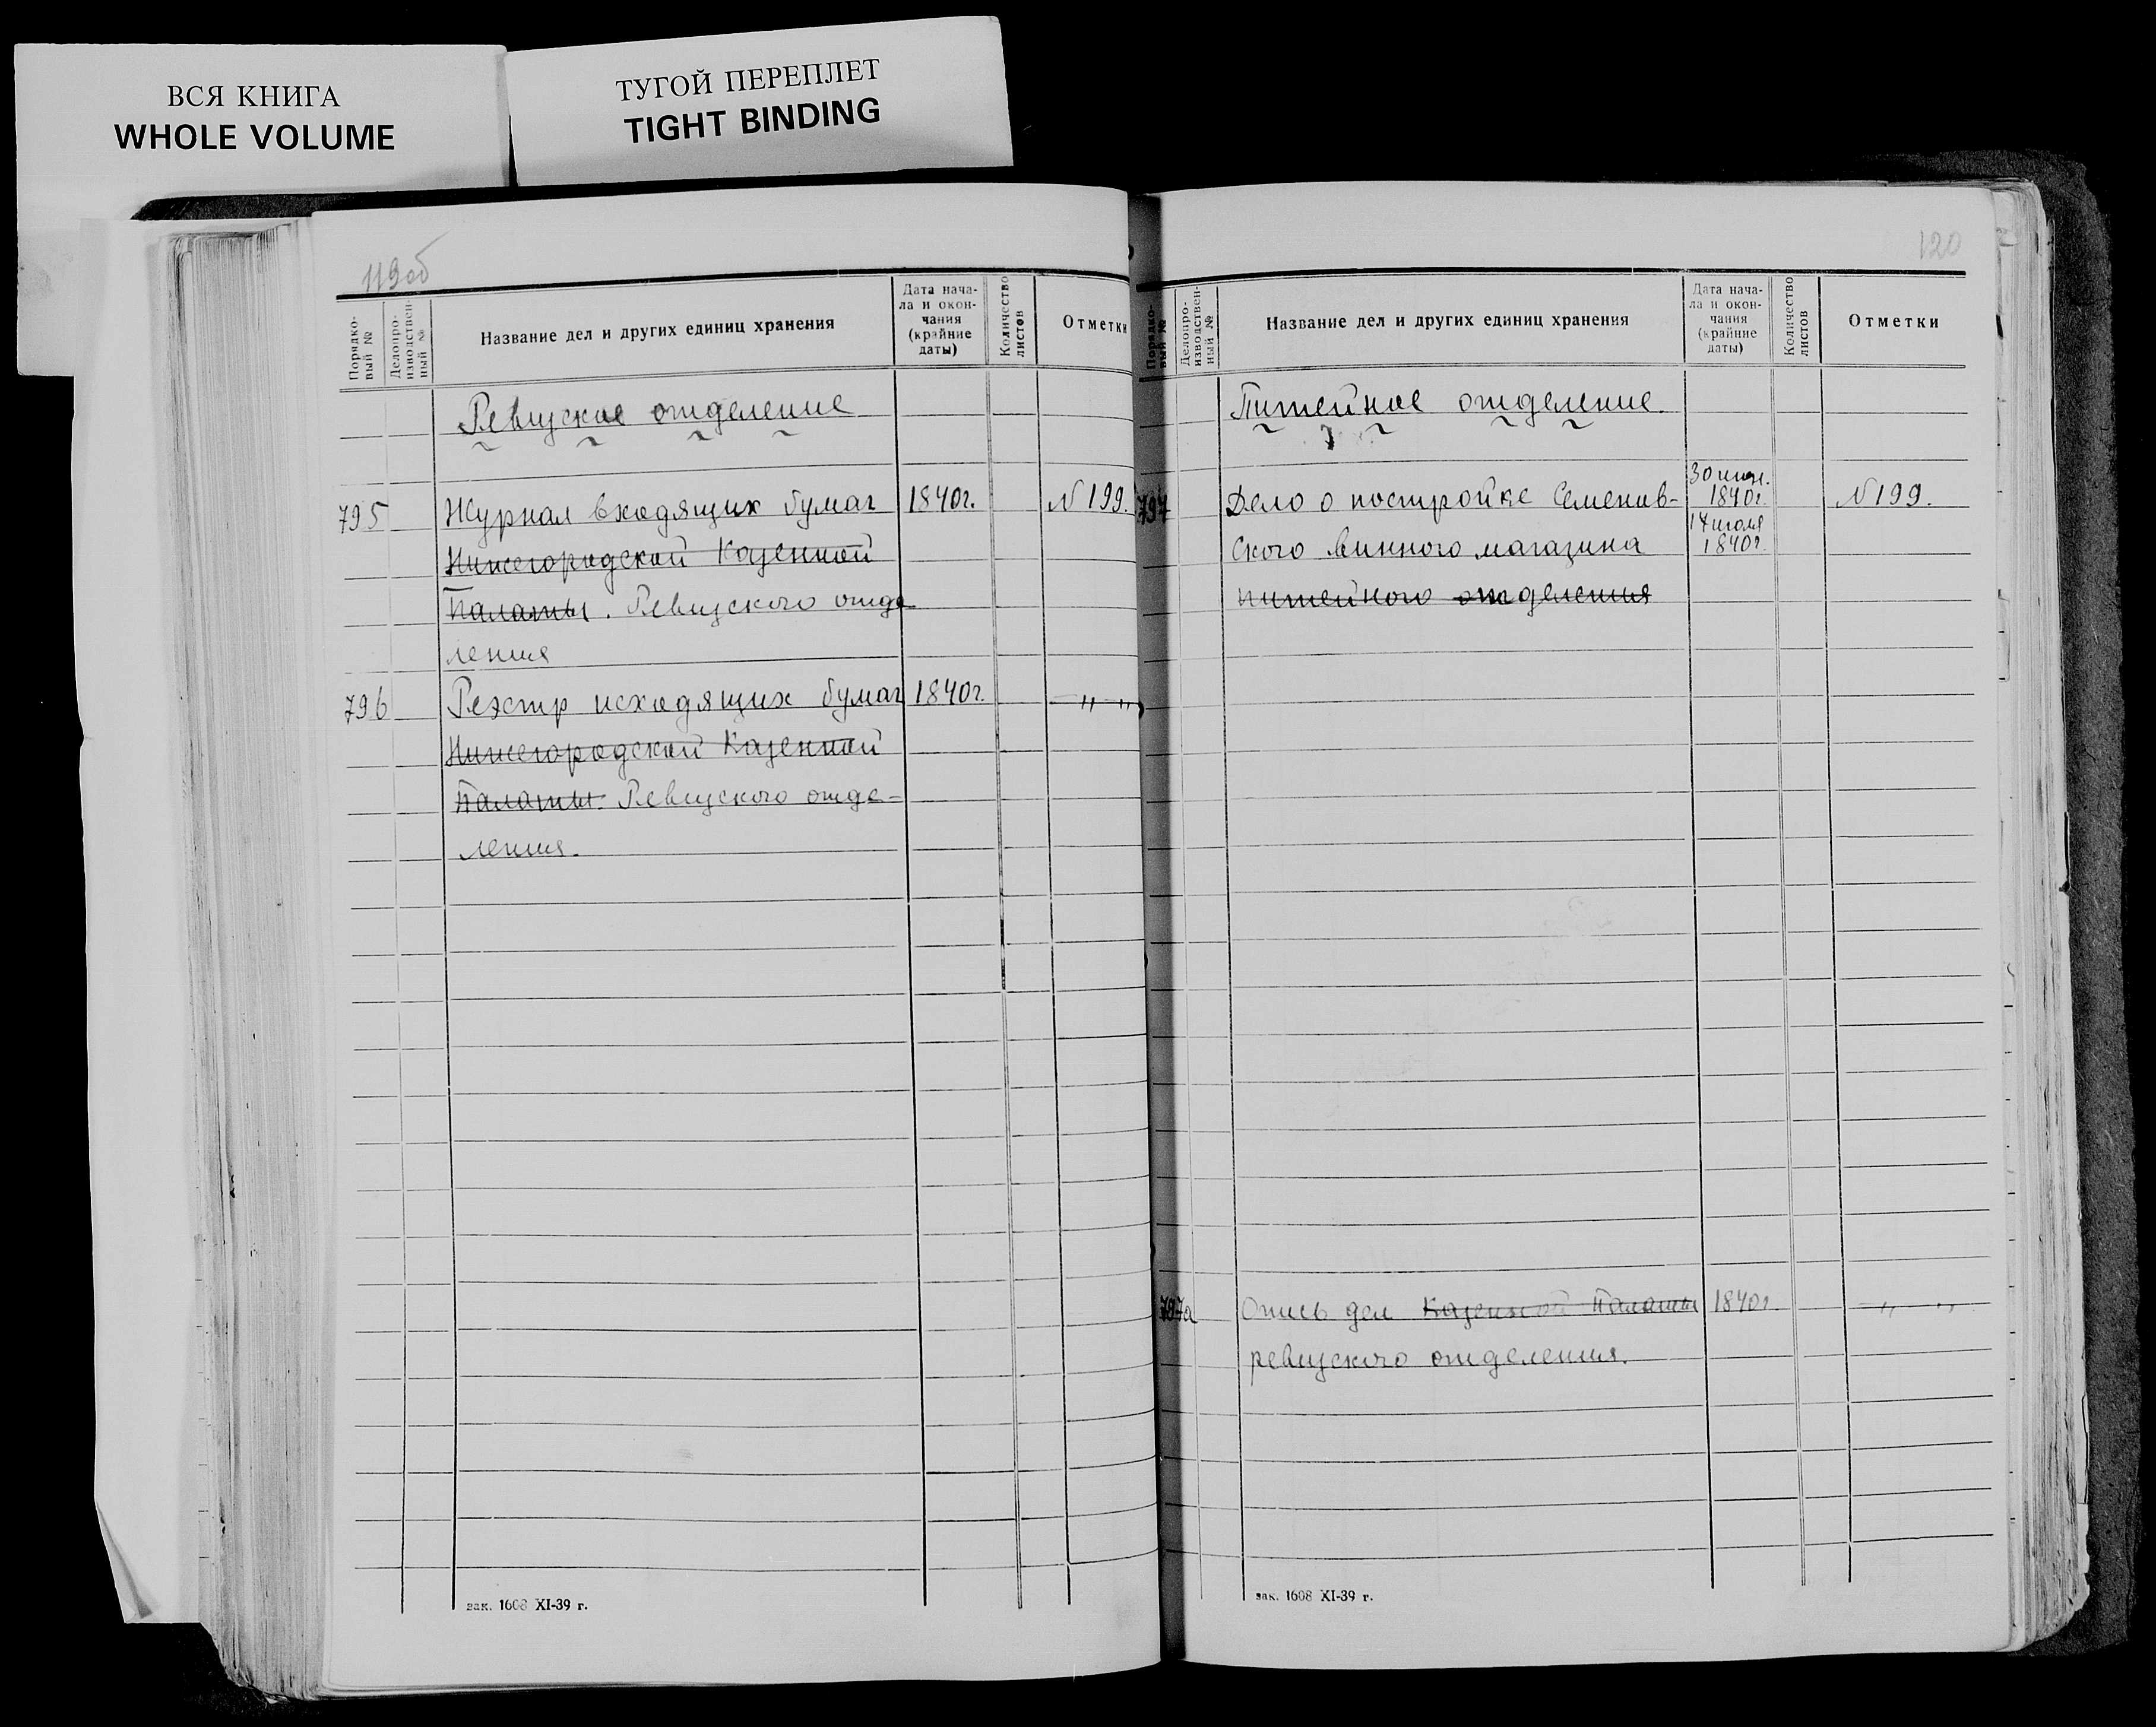 ВСЯ КНИГА
WHOLE VOLUME
ТУГОЙ ПЕРЕПЛЕТ
TIGHT BINDING
119об
Порядко-
вый №
Делопро-
изводствен-
ный №
Название дел и других единиц хранения
Дата нача-
ла и окон-
чания
(крайние
даты)
Количество
листов
Отметки
Ревизское отделение
795 Журнал входящих бумаг 1840г. N 199.
Нижегородской Казенной
Палаты. Ревизского отде
ления
796 Реэстр исходящих бумаг 1840г. — " — "
Нижегородской Казенной
Палаты. Ревизского отде-
ления.
зак. 1608 XI-39 г.
120
Порядко-
вый №
Делопро-
изводствен-
ный №
Название дел и других единиц хранения
Дата нача-
ла и окон-
чания
(крайние
даты)
Количество
листов
Отметки
Питейное отделение.
30 июн.
797 Дело о постройке Семенов- 1840г. N 199.
17 июля
ского винного магазина 1840г.
питейного отделения
797а Опись дел Казенной Палаты 1840г. — " — "
ревизского отделения.
зак. 1608 XI-39 г.